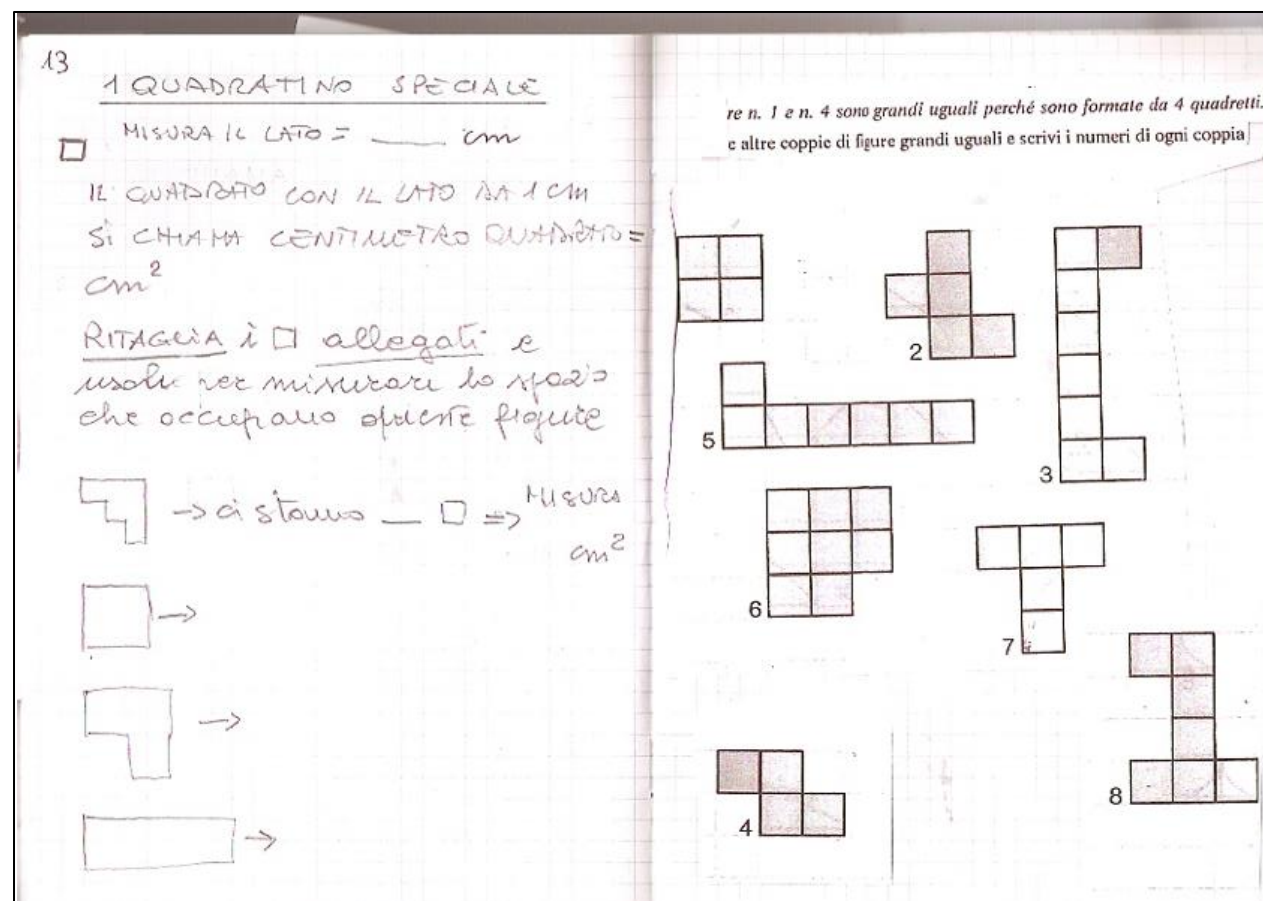 13
1 QUADRATINO SPECIALE
MISURA IL LATO = ___ cm
IL QUADRATO CON IL LATO DA 1 CM
SI CHIAMA CENTIMETRO QUADRATO =
cm²
RITAGLIA i □ allegati e
usali per misurare lo spazio
che occupano queste figure
→ ci stanno __ □ => MISURA
cm²
→
→
→
re n. 1 e n. 4 sono grandi uguali perché sono formate da 4 quadretti.
e altre coppie di figure grandi uguali e scrivi i numeri di ogni coppia
2
5
3
6
7
8
4